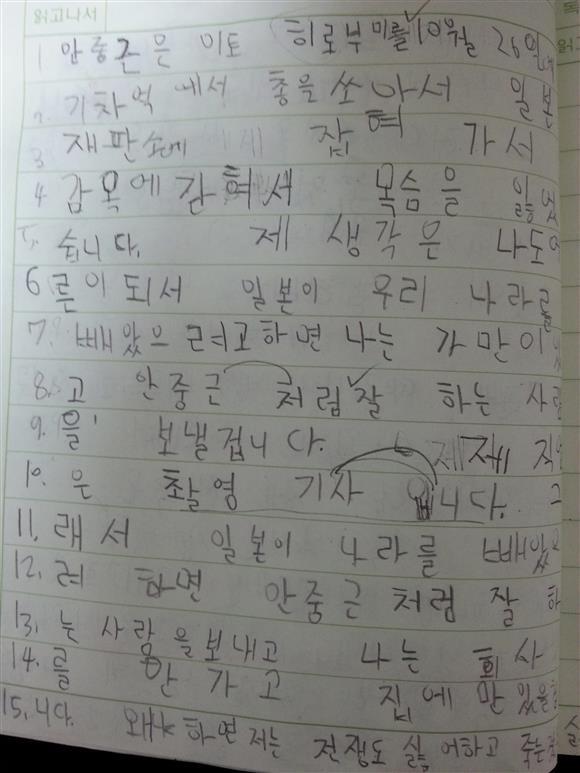 읽고나서
1 안중근은 이토 히로부미를 10월 26일에
2. 기차역에서 총을 쏘아서 일본
3 재판소에 잡혀 가서
4 감옥에 갇혀서 목슴을 잃었
5. 습니다. 제 생각은 나도 어
6 른이 되서 일본이 우리 나라를
7. 빼았으 려고하면 나는 가만이
8. 고 안중근 처럼 잘 하는 사람
9. 을 보낼겁니다. 제 직업
10. 은 촬영 기사 입니다. 그
11. 래서 일본이 나라를 빼았으
12. 려 하면 안중근 처럼 잘 하
13. 는 사람을보내고 나는 회사
14. 를 안 가고 집에 만 있을
15. 니다. 왜냐하면 저는 전쟁도 싫어하고 죽는